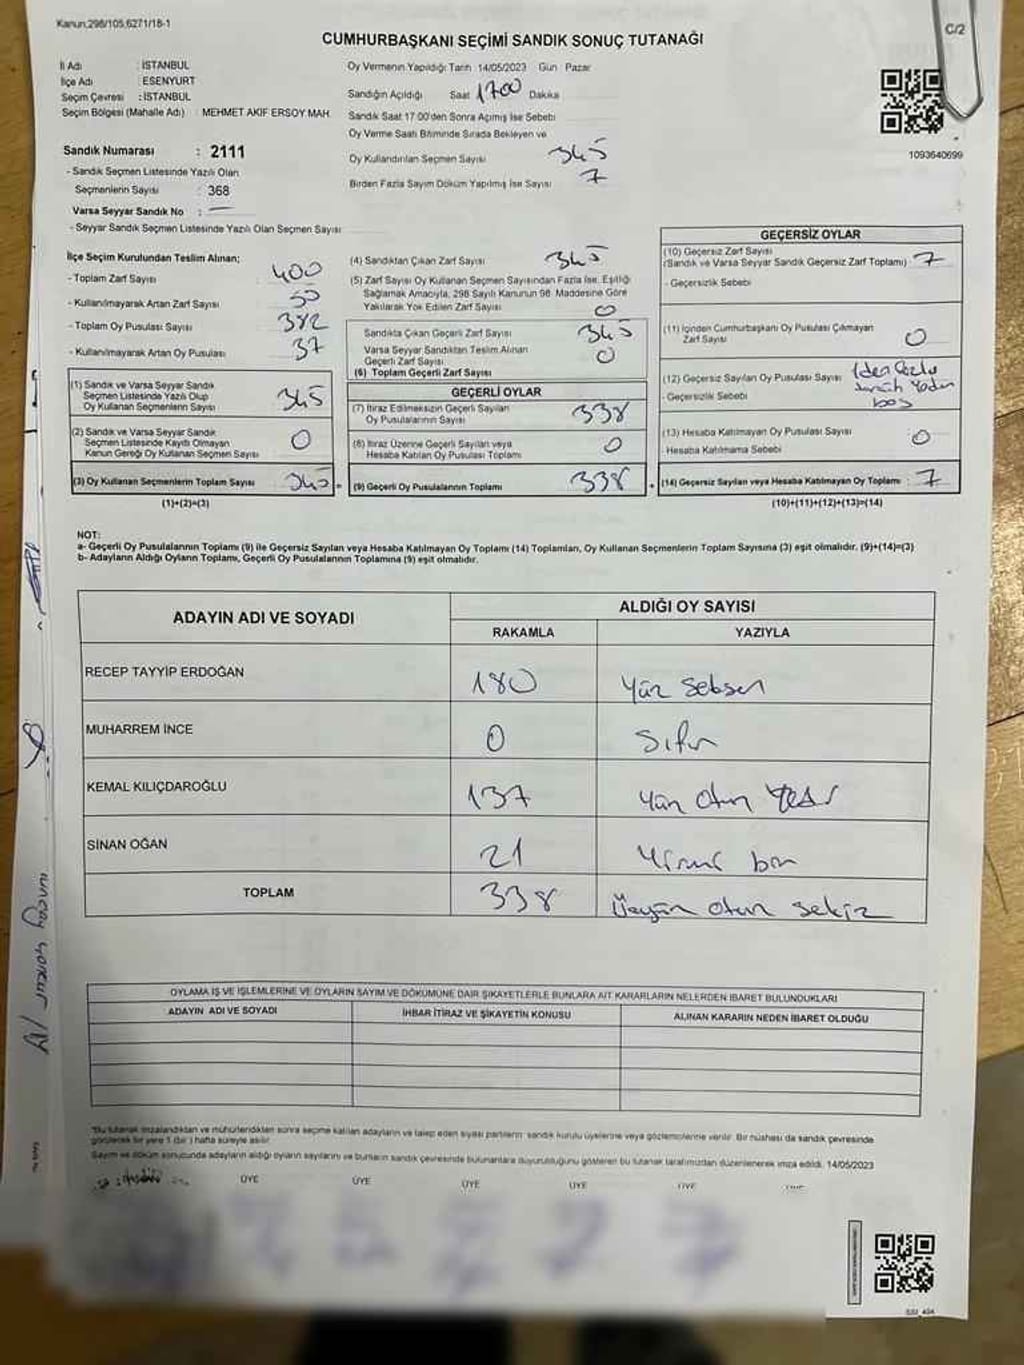 Kanun:298/105,6271/18-1
C/2
CUMHURBAŞKANI SEÇİMİ SANDIK SONUÇ TUTANAĞI
İl Adı : İSTANBUL
İlçe Adı : ESENYURT
Seçim Çevresi : İSTANBUL
Seçim Bölgesi (Mahalle Adı) : MEHMET AKİF ERSOY MAH.
Oy Vermenin Yapıldığı Tarih 14/05/2023 Gün Pazar
Sandığın Açıldığı Saat 1700 Dakika
Sandık Saat 17.00'den Sonra Açımış İse Sebebi
Oy Verme Saati Bitiminde Sırada Bekleyen ve
Oy Kullandırılan Seçmen Sayısı 345
Birden Fazla Sayım Döküm Yapılmış İse Sayısı 7
1093640699
Sandık Numarası : 2111
- Sandık Seçmen Listesinde Yazılı Olan
Seçmenlerin Sayısı : 368
Varsa Seyyar Sandık No : —
- Seyyar Sandık Seçmen Listesinde Yazılı Olan Seçmen Sayısı
İlçe Seçim Kurulundan Teslim Alınan;
- Toplam Zarf Sayısı : 400
- Kullanılmayarak Artan Zarf Sayısı : 50
- Toplam Oy Pusulası Sayısı : 382
- Kullanılmayarak Artan Oy Pusulası : 37
(1) Sandık ve Varsa Seyyar Sandık
Seçmen Listesinde Yazılı Olup
Oy Kullanan Seçmenlerin Sayısı 345
(2) Sandık ve Varsa Seyyar Sandık
Seçmen Listesinde Kayıtlı Olmayan
Kanun Gereği Oy Kullanan Seçmen Sayısı 0
(3) Oy Kullanan Seçmenlerin Toplam Sayısı 345
(1)+(2)=(3)
(4) Sandıktan Çıkan Zarf Sayısı 345
(5) Zarf Sayısı Oy Kullanan Seçmen Sayısından Fazla İse, Eşitliği
Sağlamak Amacıyla, 298 Sayılı Kanunun 98. Maddesine Göre
Yakılarak Yok Edilen Zarf Sayısı 0
Sandıkta Çıkan Geçerli Zarf Sayısı 345
Varsa Seyyar Sandıktan Teslim Alınan
Geçerli Zarf Sayısı 0
(6) Toplam Geçerli Zarf Sayısı
GEÇERLİ OYLAR
(7) İtiraz Edilmeksizin Geçerli Sayılan
Oy Pusulalarının Sayısı 338
(8) İtiraz Üzerine Geçerli Sayılan veya
Hesaba Katılan Oy Pusulası Toplamı 0
(9) Geçerli Oy Pusulalarının Toplamı 338
GEÇERSİZ OYLAR
(10) Geçersiz Zarf Sayısı
(Sandık ve Varsa Seyyar Sandık Geçersiz Zarf Toplamı) 7
- Geçersizlik Sebebi
(11) İçinden Cumhurbaşkanı Oy Pusulası Çıkmayan
Zarf Sayısı 0
(12) Geçersiz Sayılan Oy Pusulası Sayısı
- Geçersizlik Sebebi boş
(13) Hesaba Katılmayan Oy Pusulası Sayısı 0
- Hesaba Katılmama Sebebi
(14) Geçersiz Sayılan veya Hesaba Katılmayan Oy Toplamı : 7
(10)+(11)+(12)+(13)=(14)
NOT:
a- Geçerli Oy Pusulalarının Toplamı (9) ile Geçersiz Sayılan veya Hesaba Katılmayan Oy Toplamı (14) Toplamları, Oy Kullanan Seçmenlerin Toplam Sayısına (3) eşit olmalıdır. (9)+(14)=(3)
b- Adayların Aldığı Oyların Toplamı, Geçerli Oy Pusulalarının Toplamına (9) eşit olmalıdır.
ADAYIN ADI VE SOYADI ALDIĞI OY SAYISI
RAKAMLA YAZIYLA
RECEP TAYYİP ERDOĞAN 180 Yüz Seksen
MUHARREM İNCE 0 Sıfır
KEMAL KILIÇDAROĞLU 137 Yüz Otuz Yedi
SİNAN OĞAN 21 Yirmi bir
TOPLAM 338 Üçyüz otuz sekiz
OYLAMA İŞ VE İŞLEMLERİNE VE OYLARIN SAYIM VE DÖKÜMÜNE DAİR ŞİKAYETLERLE BUNLARA AİT KARARLARIN NELERDEN İBARET BULUNDUKLARI
ADAYIN ADI VE SOYADI İHBAR İTİRAZ VE ŞİKAYETİN KONUSU ALINAN KARARIN NEDEN İBARET OLDUĞU
*Bu tutanak imzalandıktan ve mühürlendikten sonra seçime katılan adayların ve talep eden siyasi partilerin sandık kurulu üyelerine veya gözlemcilerine verilir. Bir nüshası da sandık çevresinde
görülecek bir yere 1 (bir) hafta süreyle asılır.
Sayım ve döküm sonucunda adayların aldığı oyların sayılarını ve bunların sandık çevresinde bulunanlara duyurulduğunu gösteren bu tutanak tarafımızdan düzenlenerek imza edildi. 14/05/2023
ÜYE ÜYE ÜYE ÜYE ÜYE